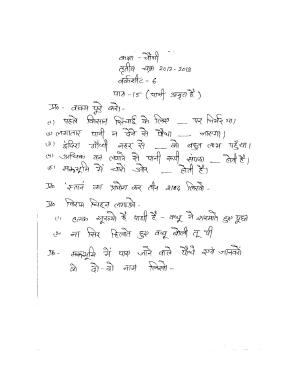 कक्षा - चौथी
तृतीय सत्र 2017-2018
वर्कशीट - 6
पाठ - 15 ( पानी अमृत है )
प्र० - वाक्य पूरे करो।
(1) पहले किसान सिंचाई के लिए ___ पर निर्भर था।
(2) लगातार पानी न देने से पौधा ___ जाएगा।
(3) इंदिरा गाँधी नहर से ___ को बहुत लाभ पहुँचा।
(4) अधिक वन लगाने से पानी की समस्या ___ होती है।
(5) मरुभूमि में चारों ओर ___ होती है।
प्र० - का प्रयोग कर तीन शब्द लिखो -
प्र० - विराम चिह्न लगाओ -
(1) हलक सूख है पानी है - कछु ने हुए पूछा
(2) ना सिर हिलाते हुए कछु बोली तू पी
प्र० - मरुभूमि में पाए जाने वाले पौधों एवं जानवरों
के दो - दो नाम लिखो -